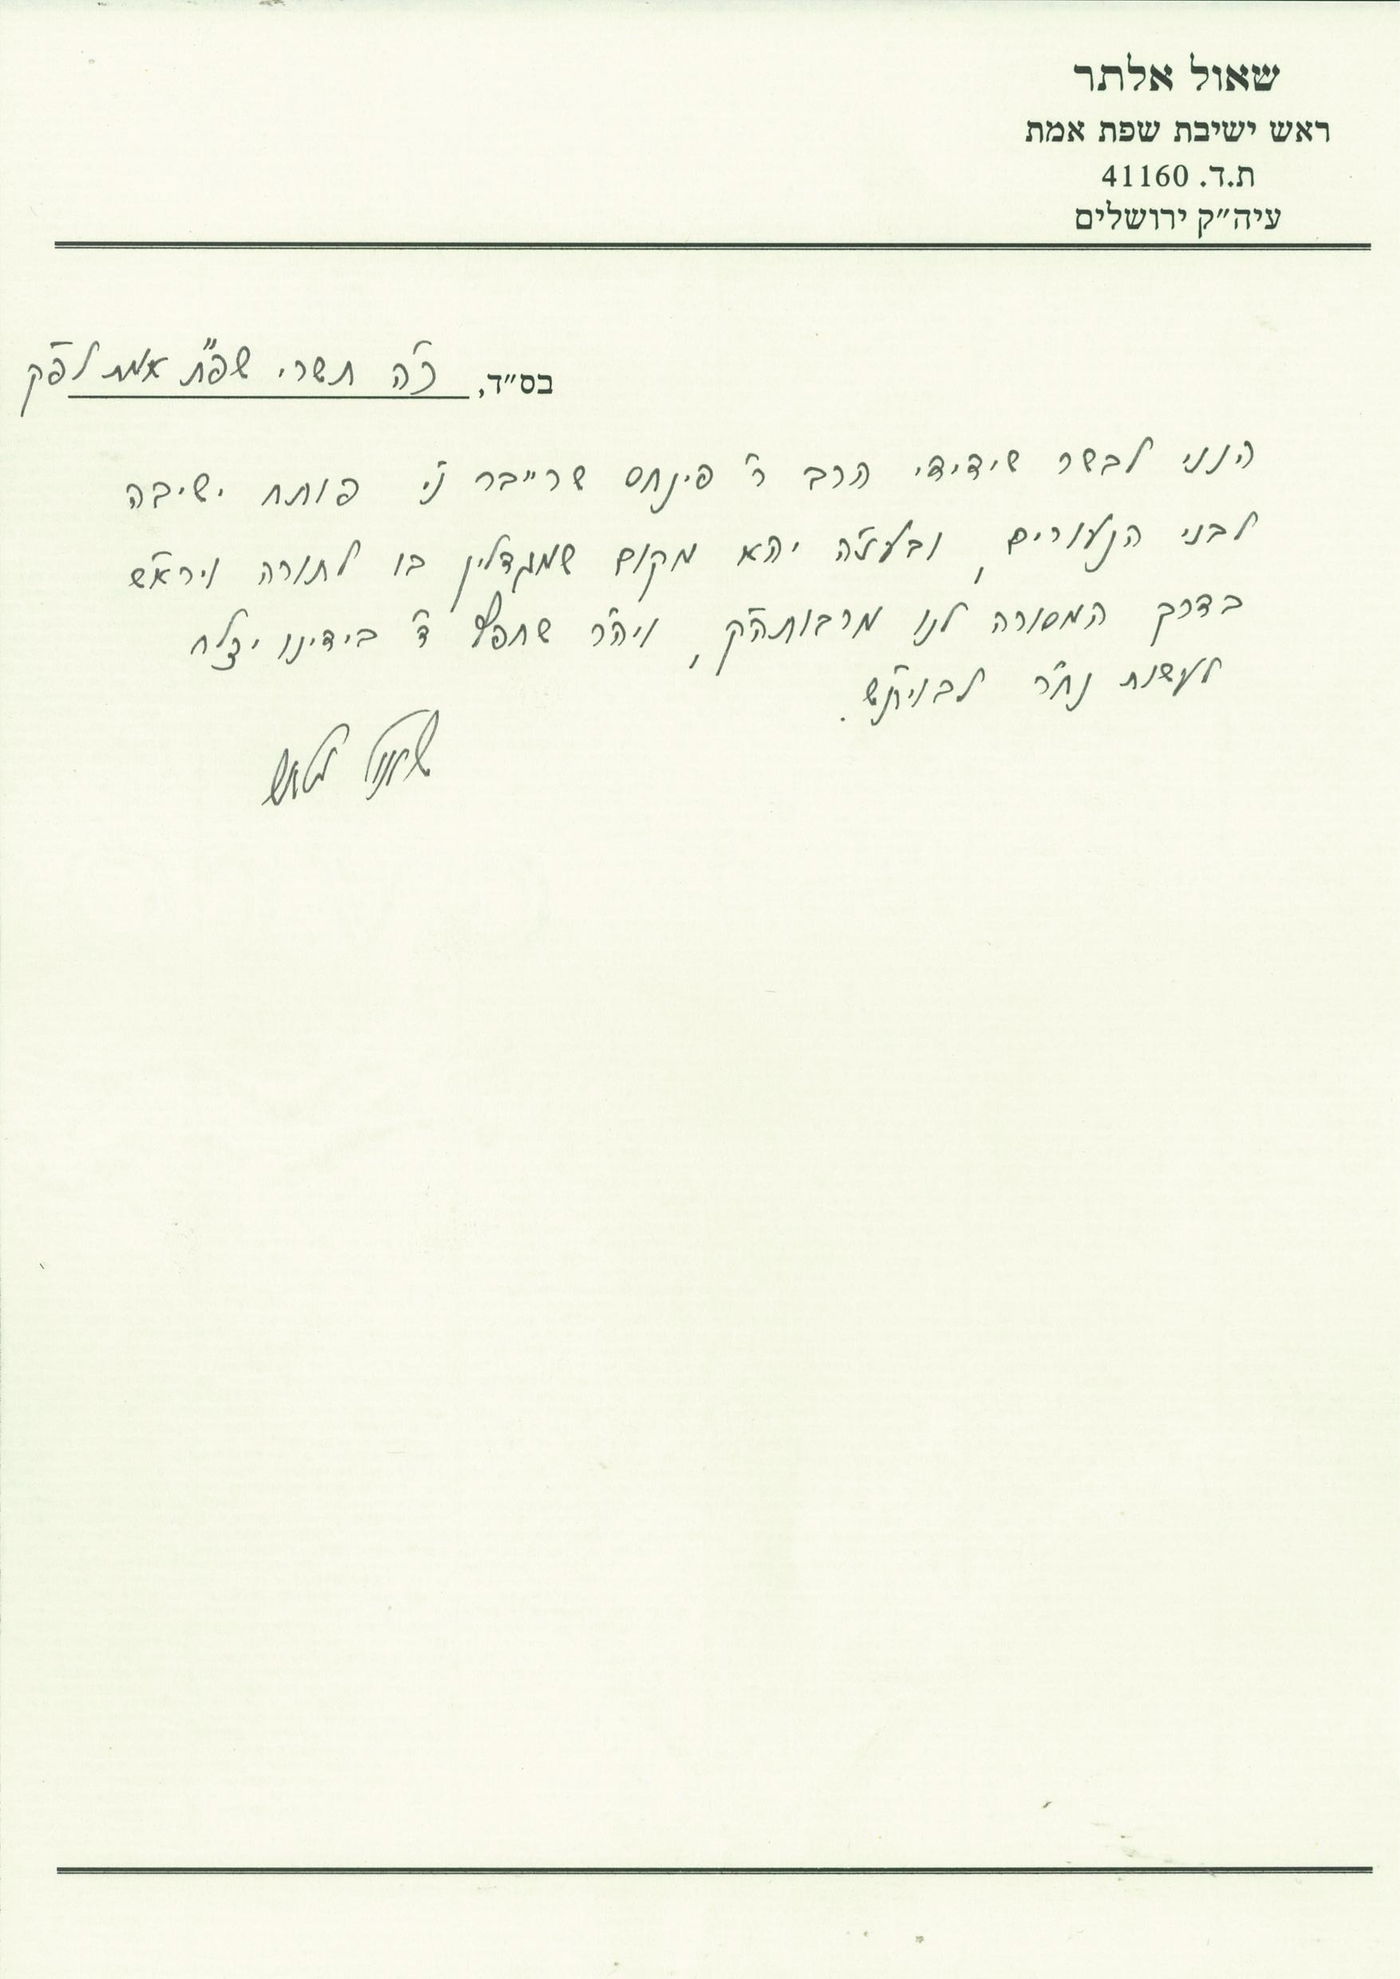 שאול אלתר
ראש ישיבת שפת אמת
ת.ד. 41160
עיה״ק ירושלים
בס״ד, כ"ה תשרי שפ"ת אמת לפ"ק
הנני לבשר שידידי הרב ר' פינחס שרייבר נ"י פותח ישיבה
לבני הנעורים, ובעצ"ה יהא מקום שמגדלין בו לתורה ויראש
בדרך המסורה לנו מרבותה"ק, ויה"ר שחפץ ד' בידינו יצלח
לעשות נח"ר לבוית"ש.
שאול אלתר